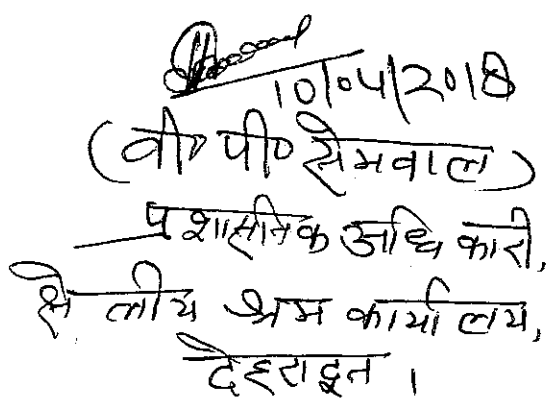 10/04/2018
(वी० पी० सेमवाल)
प्रशासनिक अधिकारी,
क्षेत्रीय श्रम कार्यालय,
देहरादून ।